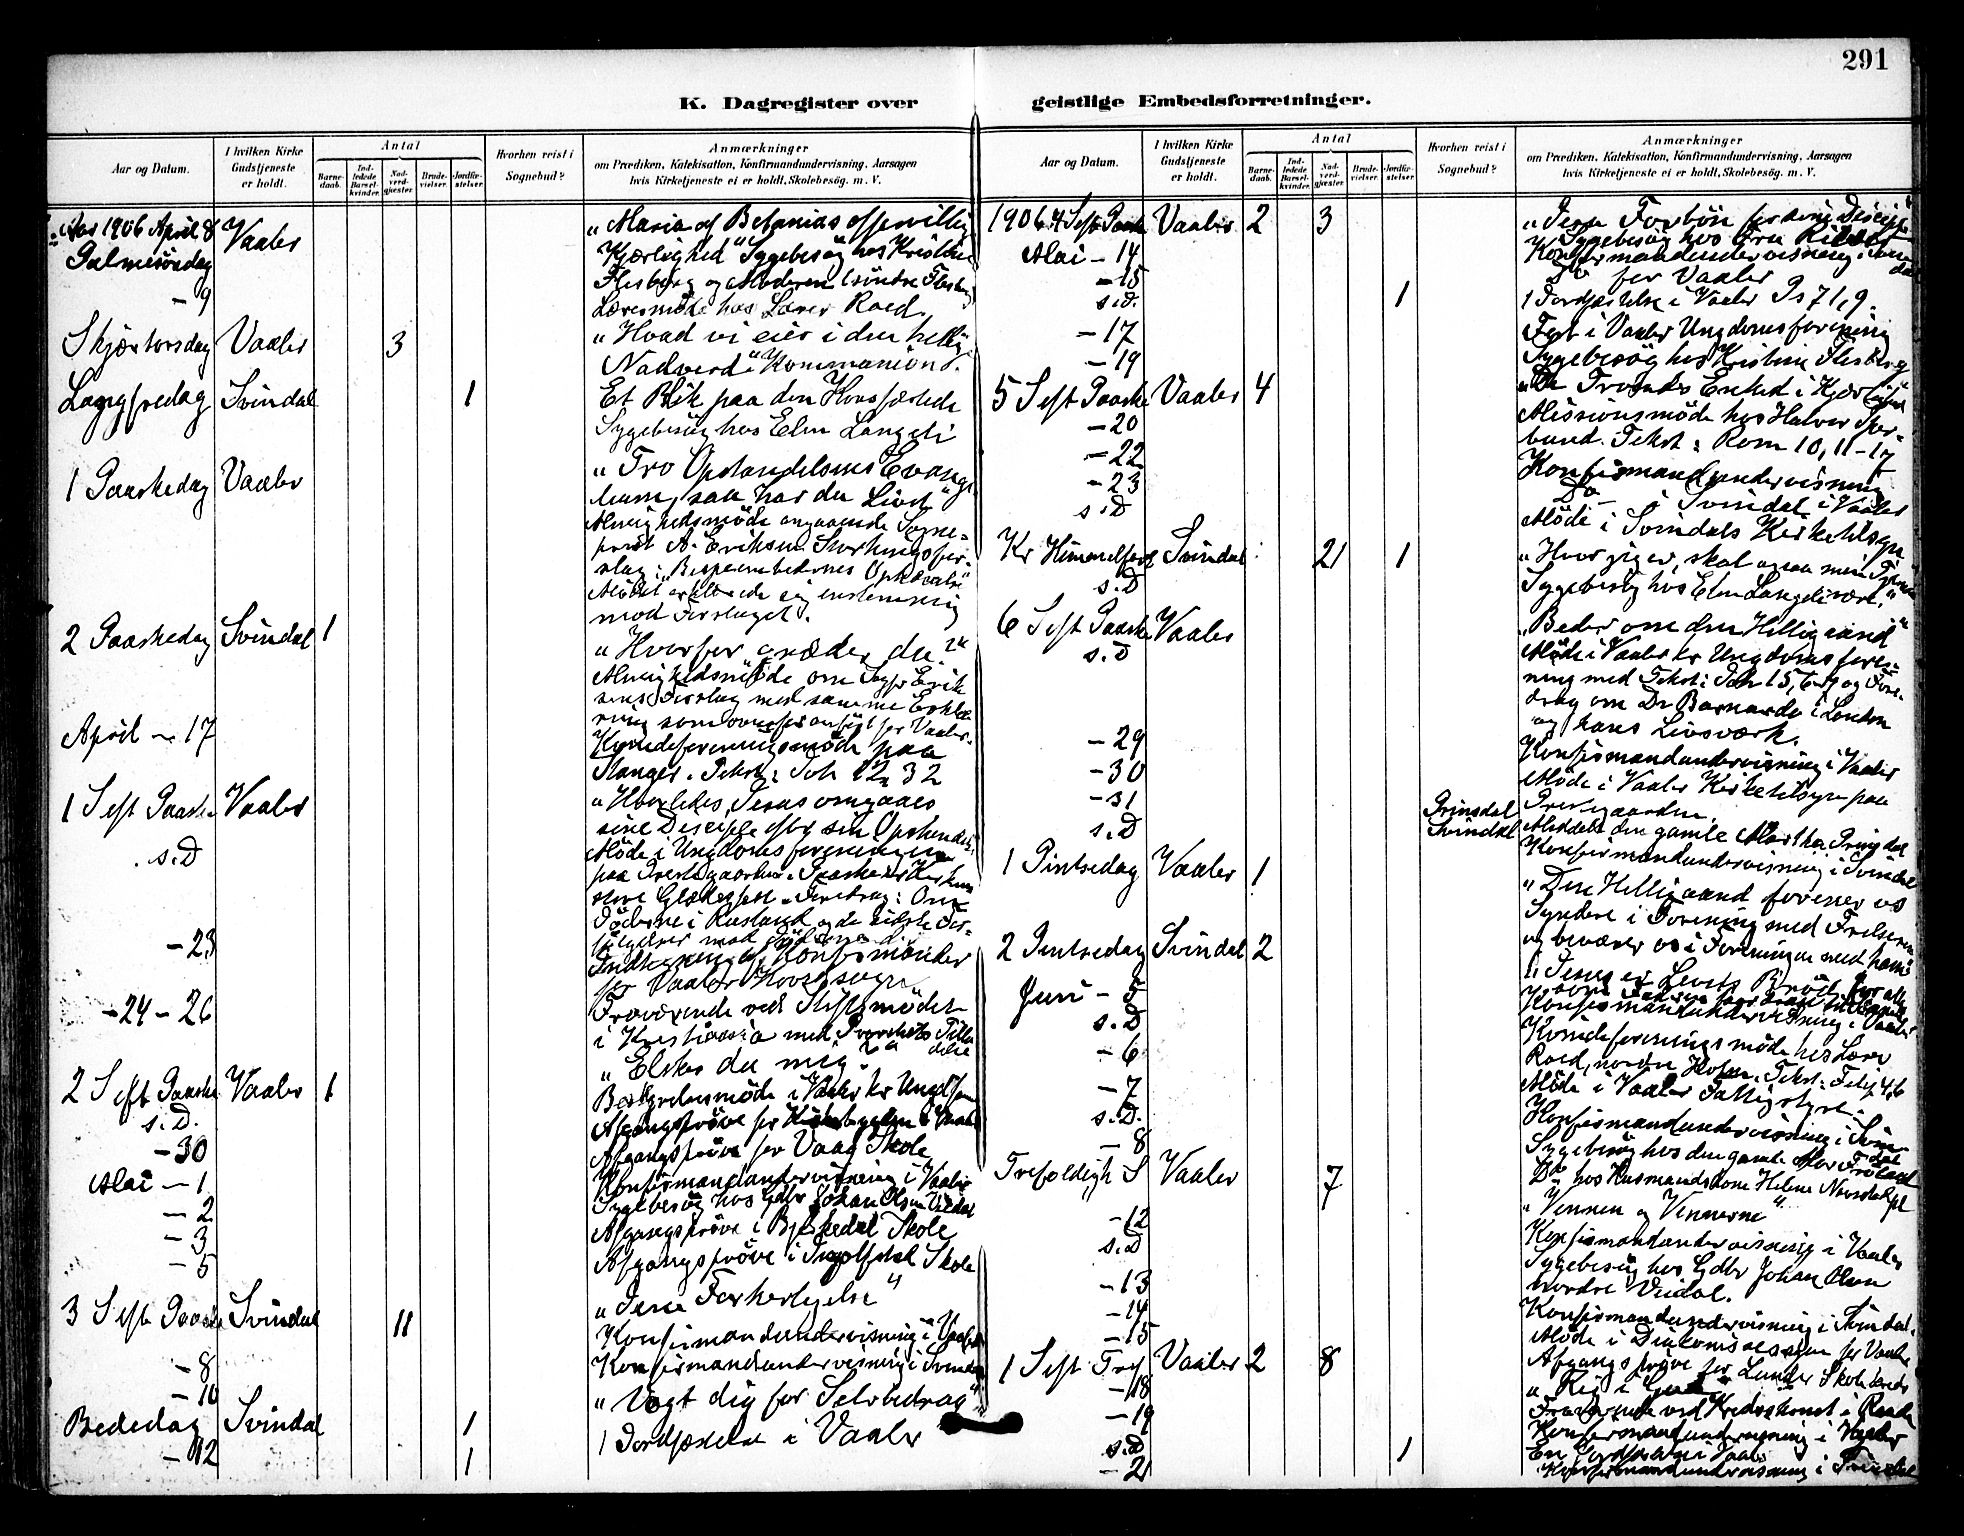 291
K. Dagregister over geistlige Embedsforretninger.
Aar og Datum.
I hvilken Kirke Gudstjeneste er holdt.
Antal
Barne-daab.
Ind-ledede Barsel-kvinder.
Nad-verd-gjester
Brude-vielser.
Jordfæ-stelser
Hvorhen reist i Sognebud?
Anmærkninger
om Prædiken, Katekisation, Konfirmandundervisning, Aarsagen
hvis Kirketjeneste ei er holdt, Skolebesøg. m. V.
Aar 1906 April 8 Vaaler
Palmesöndag
„Maria af Betanias offervillig
Kjærlighed" Sygebesög hos Kristine
Flesberg og Moderen
- 9
Læremöde hos Lærer Roed.
Skjærtorsdag Vaaler 3
„Hvad vi eier i den hellig
Nadverd"
Langfredag Svindal 1
Et Blik paa den Korsfæstede
Sygebesög hos Elm Langeli
1 Paaskedag Vaaler
„Tro Opstandelsens Evange
lium, saa har du Livet"
Menighedsmöde angaaende Sogne-
prest A. Eriksens Stortingsfor-
slag: „Bispeembedernes Ophævelse"
mod Forslaget.
2 Paaskedag Svindal 1
„Hvorfor græder du?"
Menighedsmöde om Sogpr Erik
sens Forslag med samme Erklæ
ring som ovenfor anfört for Vaaler.
April - 17
Kvindeforeningsmöde paa
Stanger. Tekst: Joh 12, 32
1 S eft Paaske Vaaler
„Hvorledes Jesus omgaaes
sine Disciple efter sin Opstandelse
s.D
Möde i Ungdomsforeningen
paa Prestegaarden.
store Glædesfest. Foredrag: Om
Jöderne i Rusland og de sidste For-
fölgelser mod Jöderne
- 23
Indtegning af Konfirmander
for Vaaler Hovedsogn
- 24 - 26
Fraværende ved Stiftsmödet
i Kristiania med Provstiets Tilla
delse
2 S eft Paaske Vaaler 1
„Elsker du mig?"
s.D.
Bestyrelsesmöde i Vaaler kr Ungdfor
- 30
Afgangspröve for Vaag Skole
Mai - 1
Konfirmandundervisning i Vaaler
- 2
Sygebesög hos Gdbr Johan Olsen Vridal
- 3
Afgangspröve i Skole
- 5
Afgangspröve i Skole
3 S eft Paaske Svindal 11
„Jesu Forherligelse"
- 8
Konfirmandundervisning i Vaaler
- 10
Konfirmandundervisning i Svindal
Bededag Svindal 1
„Vogt dig for Selvbedrag"
- 12 1
1 Jordfæstelse i Vaaler
Aar og Datum.
I hvilken Kirke Gudstjeneste er holdt.
Antal
Barne-daab.
Ind-ledede Barsel-kvinder.
Nad-verd-gjester
Brude-vielser.
Jordfæ-stelser.
Hvorhen reist i Sognebud?
Anmærkninger
om Prædiken, Katekisation, Konfirmandundervisning, Aarsagen
hvis Kirketjeneste ei er holdt, Skolebesøg. m. V.
1906 4 S eft Paaske Vaaler 2 3
„Jesu Forbön for sine Disciple"
Sygebesög hos Fru
Mai - 14
Konfirmandundervisning i Svin
dal
- 15
Do for Vaaler
s.D. 1
1 Jordfæstelse i Vaaler Ps 71, 9.
- 17
Fest i Vaaler Ungdomsforening
- 19
Sygebesög hos Kristine Flesberg
5 S eft Paaske Vaaler 4
„De Troendes Enhed i Kjærlighed
- 20
Missionsmöde hos Halvor
Tekst: Rom 10, 11-17
- 22
Konfirmandundervisning
- 23
Do i Svindal i Vaaler
s.D
Möde i Svindals Kirketilsyn
Kr Himmelfart Svindal 21 1
„Hvor jeg er, skal ogsaa min Tjener
være."
s.D
Sygebesög hos Elm Langeli
6 S eft Paaske Vaaler
„Beder om den Helligaand"
s.D
Möde i Vaaler kr Ungdomsfore-
ning med Tekst: Joh 15, 6-7 og Fore-
drag om Dr Barnardo i London
og hans Livsværk.
- 29
Konfirmandundervisning i Vaaler
- 30
Möde i Vaaler Kirketilsyn paa
Prestegaarden.
- 31 Prinsdal Svindal
Meddelt den gamle Martha Prinsdal
s.D
Konfirmandundervisning i Svindal
1 Pintsedag Vaaler 1
„Den Helligaand forener os
Syndere i Forening med Frelseren
og bevarer os i Foreningen med ham"
2 Pintsedag Svindal 2
„Jesus er Livets Bröd for alle
Juni - 5
Konfirmandundervisning i Vaaler
s.D
Kvindeforeningsmöde hos Lærer
Roed, nordre Holm. Tekst: Filip 4, 6
- 6
Möde i Vaaler Fattigstyre.
- 7
Konfirmandundervisning i Svin-
dal
s.D.
Sygebesög hos den gamle Mor Fröland
- 8
Do hos Husmandskone Helene Norsdal pl
Trefoldigh S Vaaler 7
„Vennen og Vennerne"
- 12
Konfirmandundervisning i Vaaler
s.D
Sygebesög hos Gdbr Johan Olsen
nordre Vridal.
- 13
Konfirmandundervisning i Svindal.
- 14
Möde i Diakonissesagen for Vaaler
- 15
Afgangspröve for Lunder Skolekreds
1 S eft Tref Vaaler 2 8
„Rig i Gud"
- 18
Fraværende ved Kredsmödet i Raade
- 19
Konfirmandundervisning i Vaaler
s.D 1
En Jordfæstelse i Vaaler
- 21
Konfirmandundervisning i Svindal